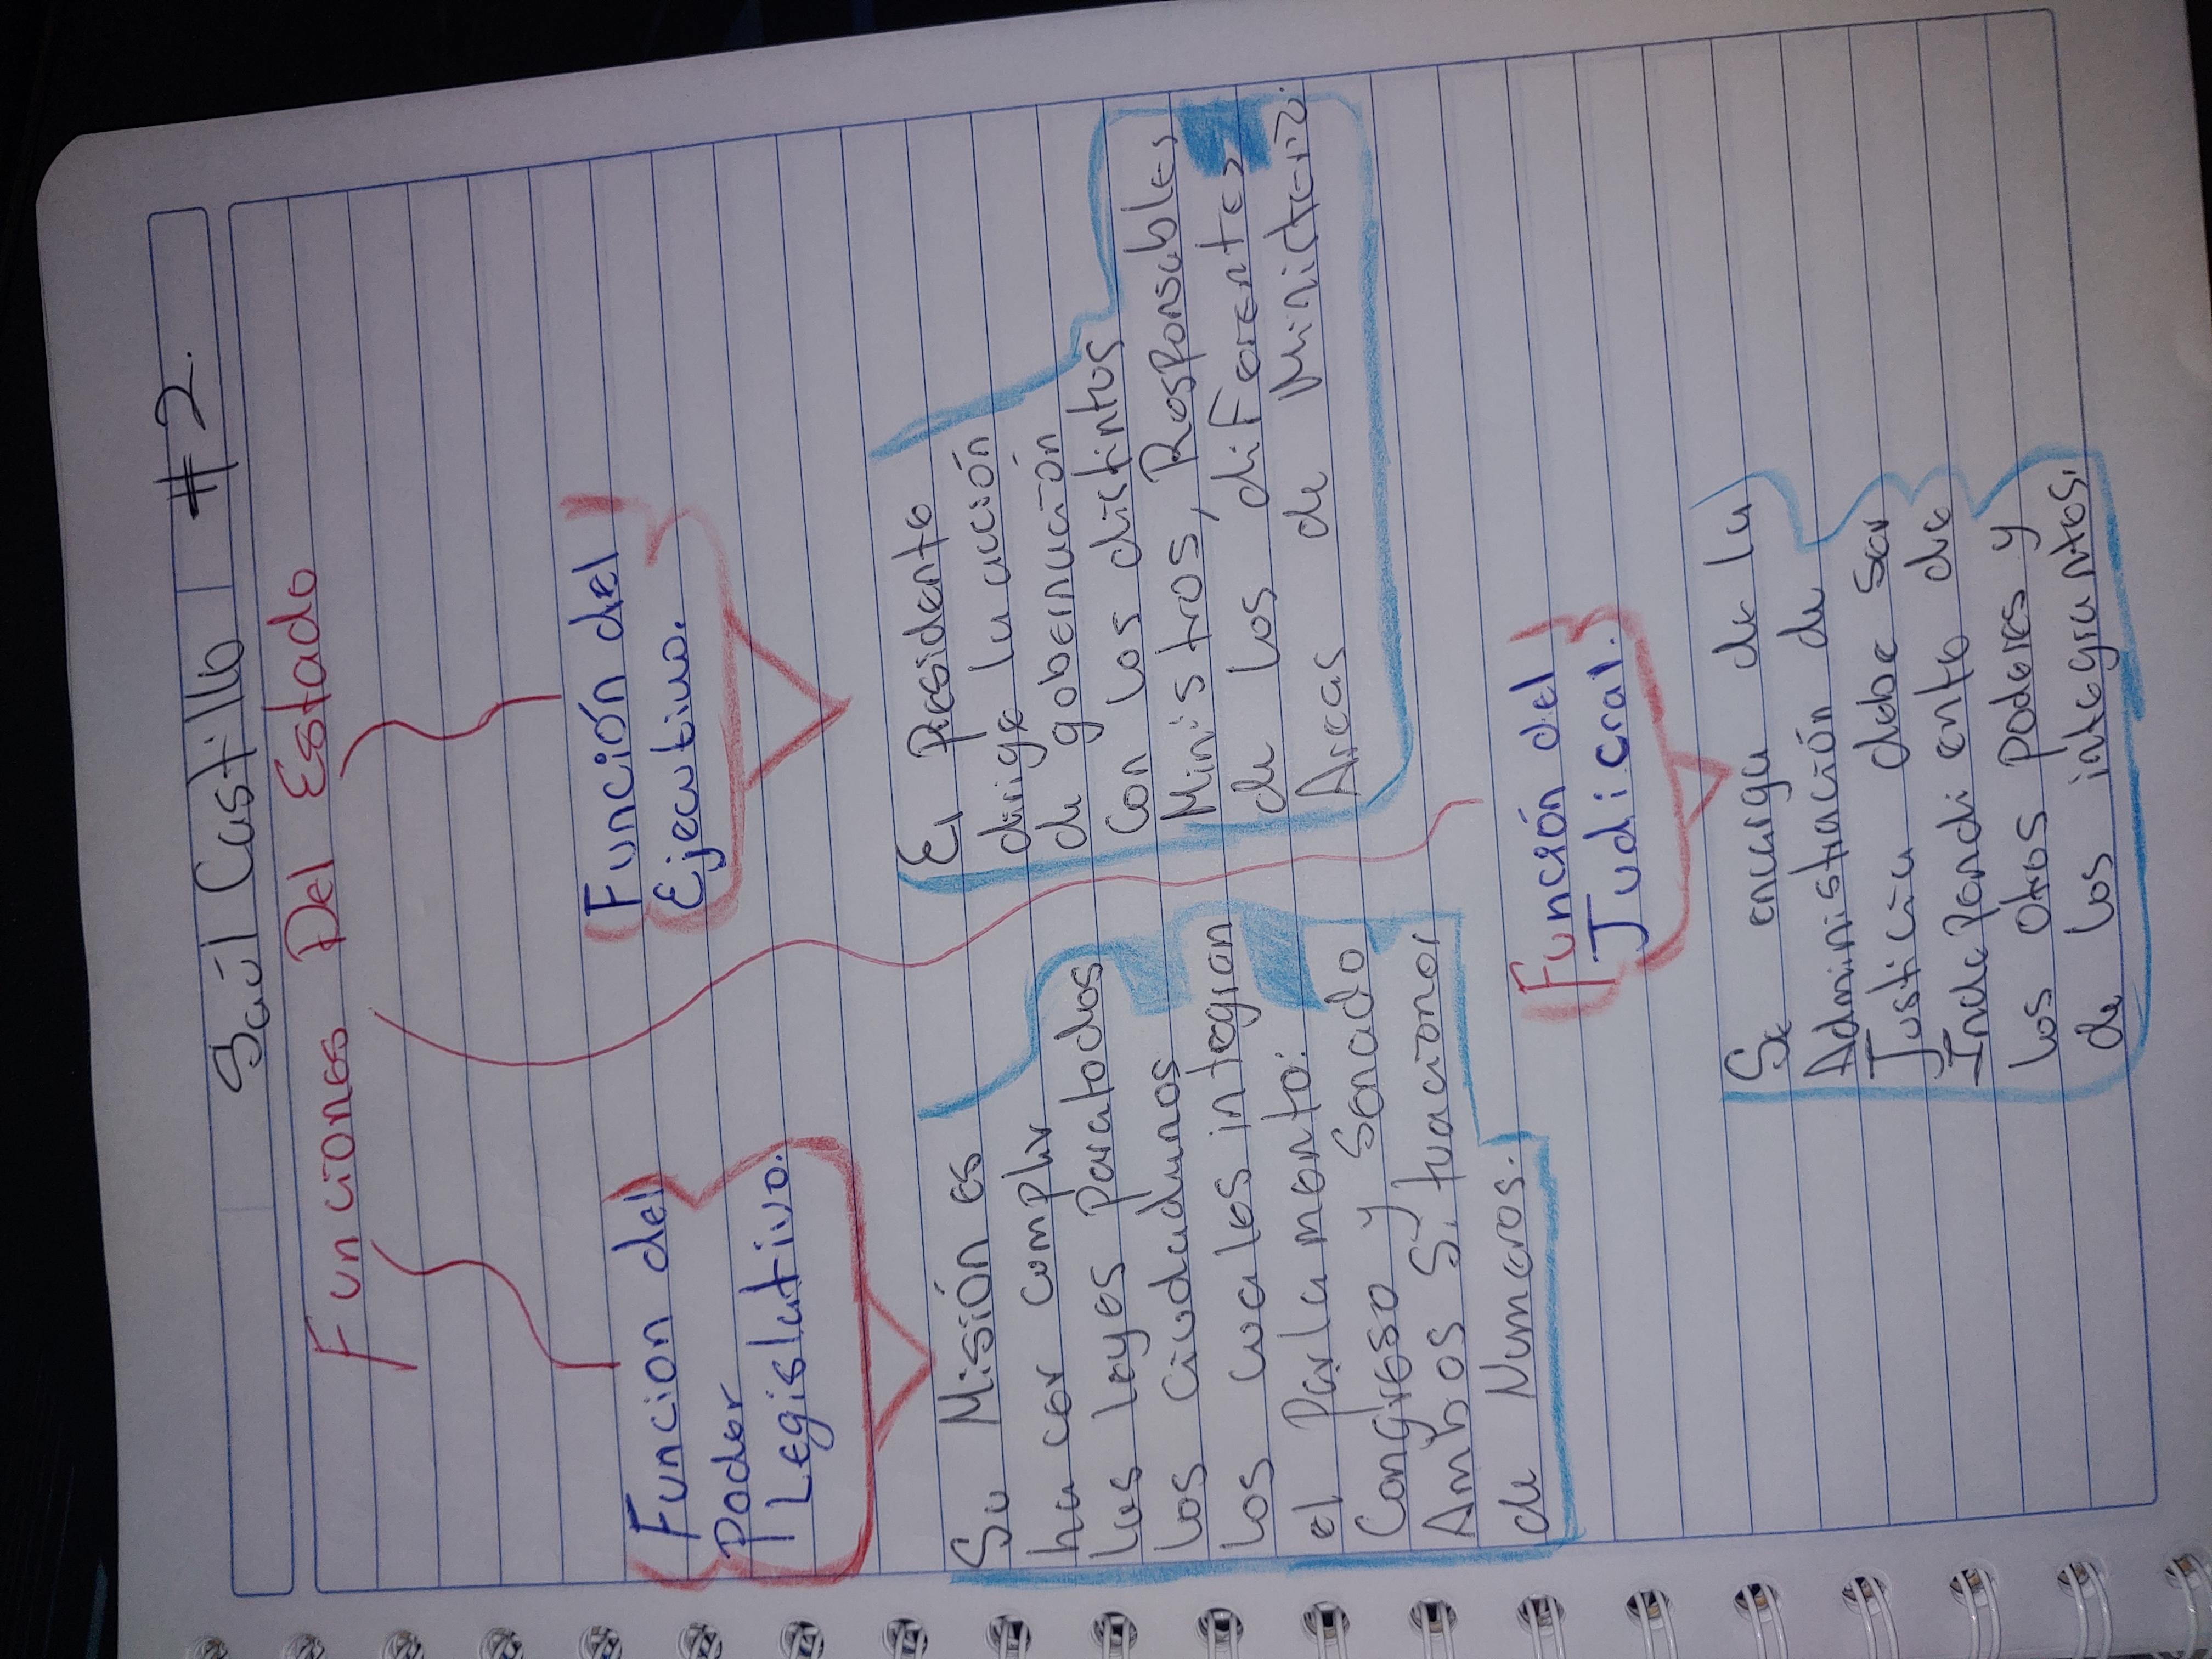 Saúl Castillo #2.
Funciones Del Estado
Funcion del
Poder
Legislativo.
Su Misión es
hacer cumplir
las leyes para todos
los ciudadanos
los cuales integran
el parlamento:
Congreso y Senado
Ambos Si, funcionar
de Numeros.
Función del
Ejecutivo.
El Presidente
dirige la acción
de gobernación
Con los distintos
Ministros, Responsables
de los diferentes
Areas de Ministerio.
Función del
Judicral.
Se encarga de la
Administración de
Justicia debe ser
Independiente de
los otros poderes y
de los integrantes.